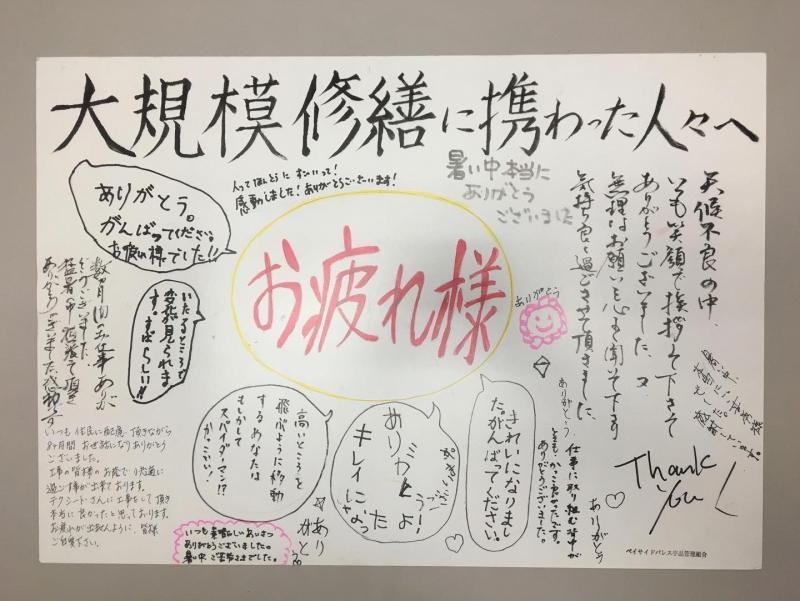 大規模修繕に携わった人々へ
ありがとう。
がんばってください。
お疲れ様でした!!
人ってほんとうにすごいって!
感動しました!ありがとうございます!
暑い中本当に
ありがとう
ございました
天候不良の中、
いつも笑顔で挨拶して下さって
ありがとうございました。又
無理なお願いを心よく聞いて下さり
気持ち良く過ごさせて頂きました。
お疲れ様
ありがとう
数ヶ月間お仕事ありが
とうございました
猛暑の中頑張って頂き
ありがとうございました。
いたるところで
変化が見られま
す。すばらしい!!
高いところを
飛ぶように移動
するあなたは
もしかして
スパイダーマン!?
かっこいい!
ありがとう
キレイになった
よ!
きれいになりまし
たがんばってください。
ありがとう
仕事に取り組む背中が
とても、かっこよかったです。
ありがとうございました。
ありがとう
Thank
You
いつも住民に配慮頂きながら
8ヶ月間お世話になりありがとう
ございました。
工事の皆様のお蔭で快適に
過ごす事が出来ております。
テクシードさんに工事をして頂き
本当に良かったと思っております。
お疲れが出ませんように、皆様
ご自愛下さい。
いつも素晴らしいあいさつ
ありがとうございました。
暑い中ご苦労さまでした。
ありがとう
ベイサイドパレス宇品管理組合